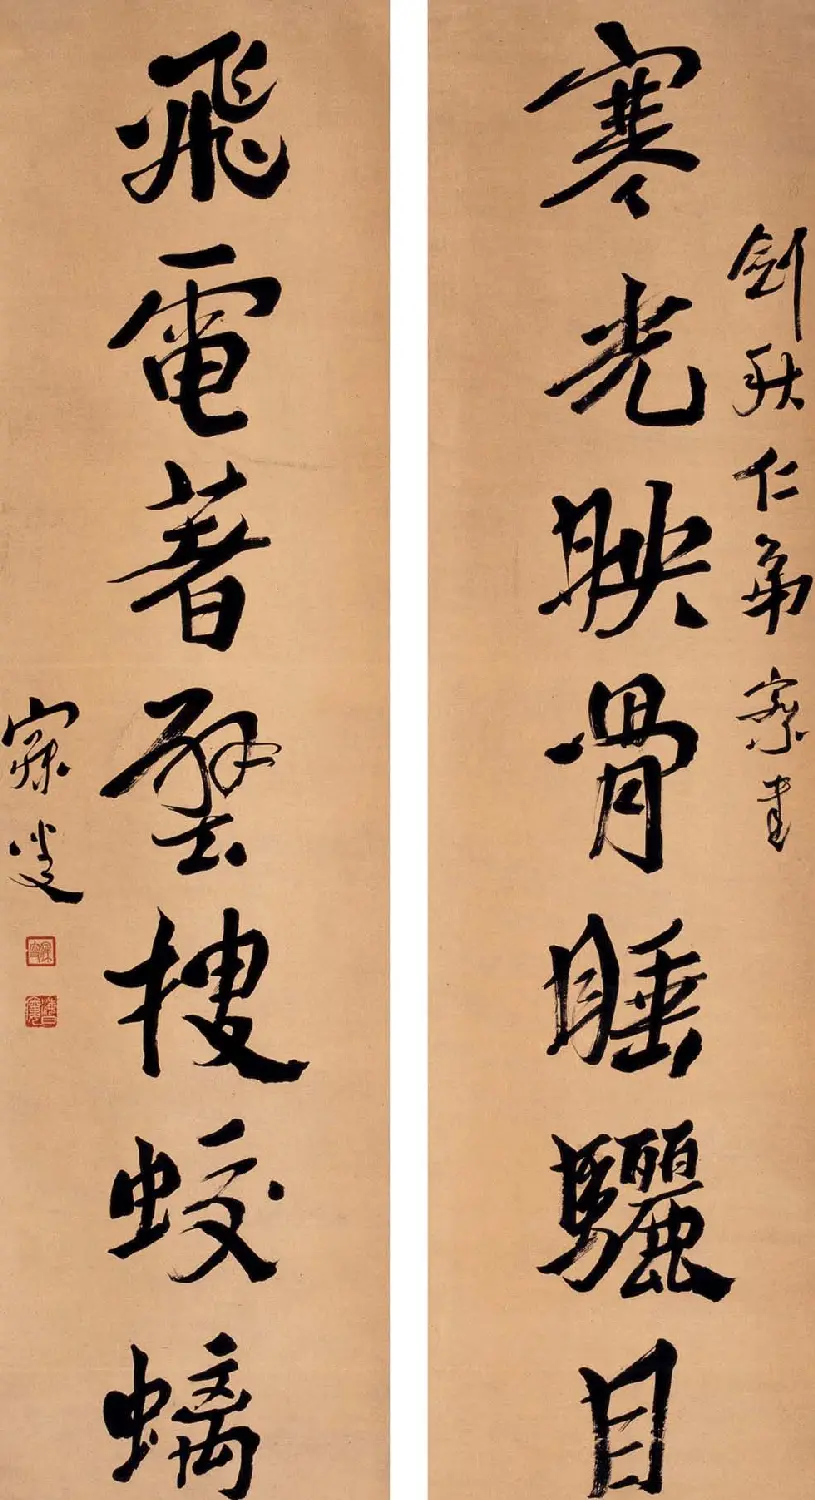 劍秋仁弟察書
寒光映骨睡驪目
飛電著壁搜蛟螭
寐叟